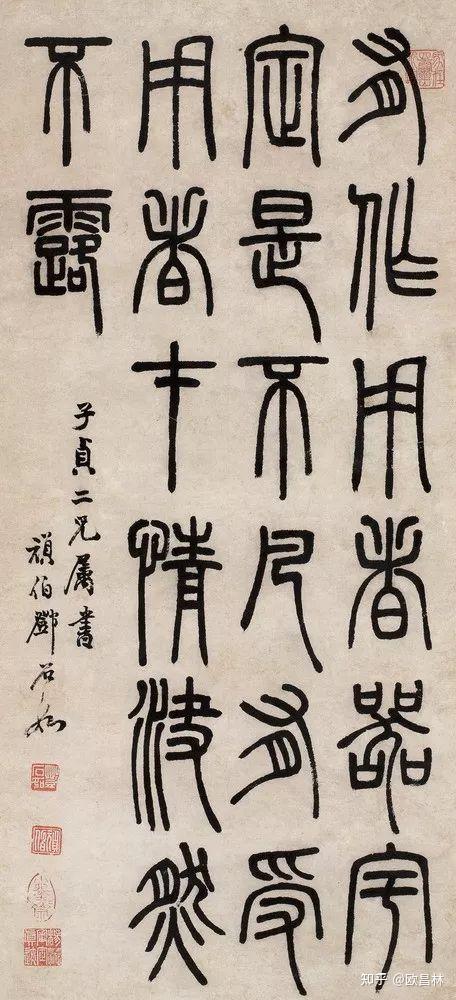 有作用者器宇
定是不凡有受
用者才情決然
不露
子貞二兄屬書
頑伯鄧石如
知乎 @欧昌林